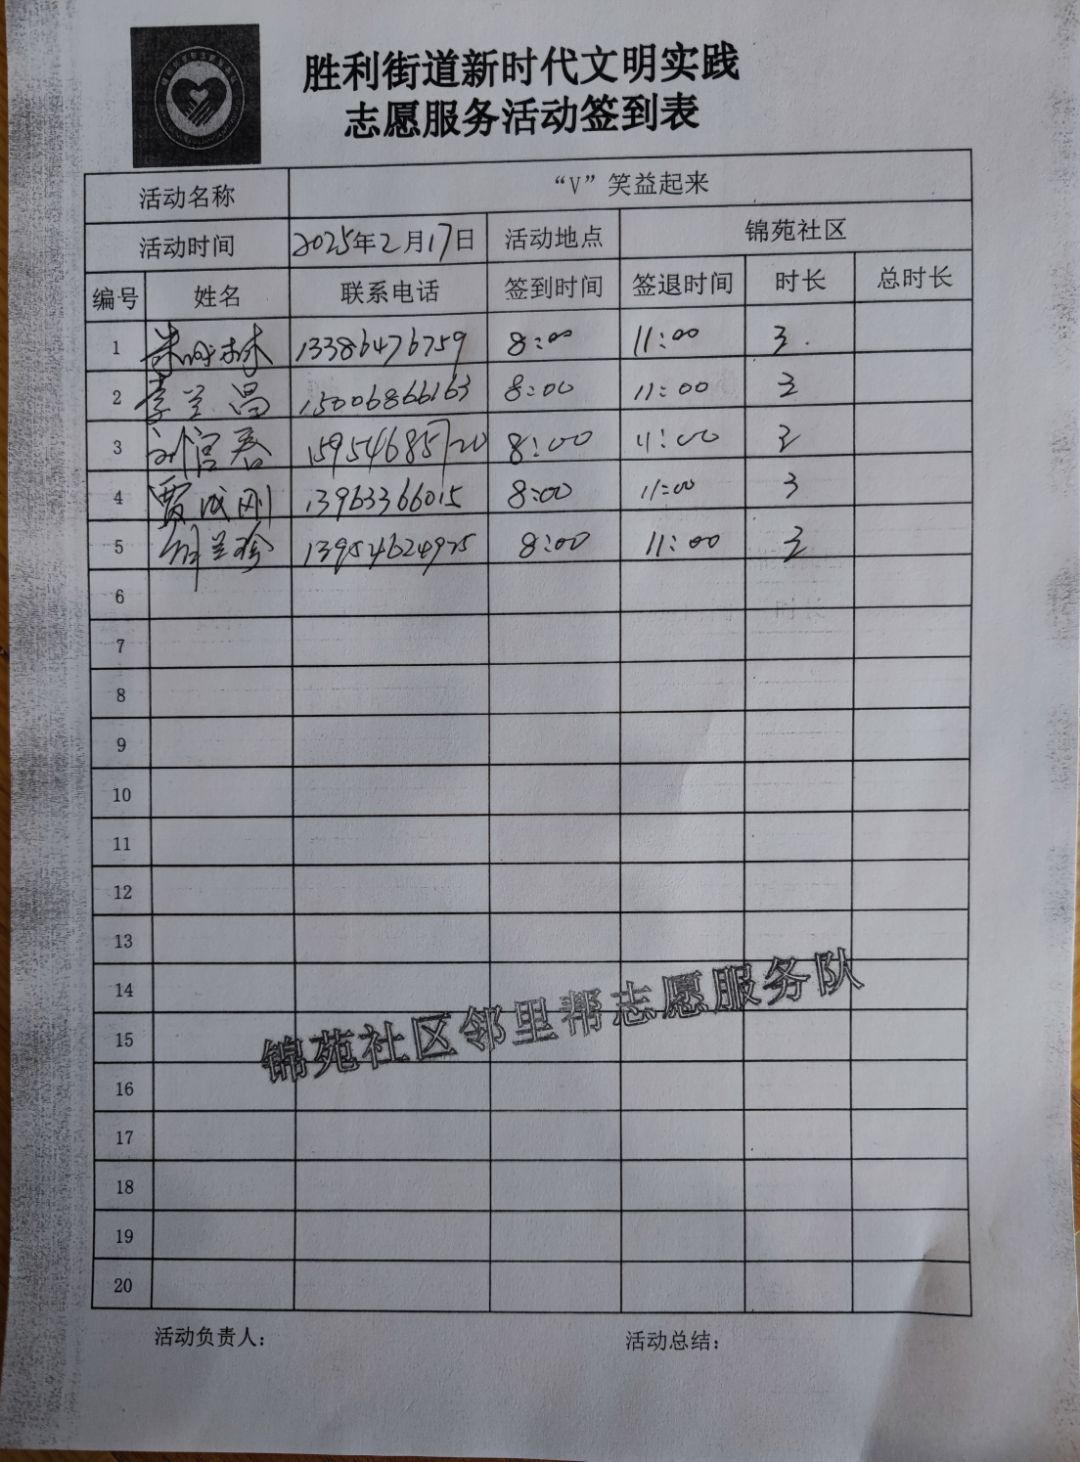 胜利街道新时代文明实践
志愿服务活动签到表
活动名称 “V”笑益起来
活动时间 2025年2月17日 活动地点 锦苑社区
编号 姓名 联系电话 签到时间 签退时间 时长 总时长
1 13386476759 8:00 11:00 3
2 李兰昌 15006866163 8:00 11:00 3
3 刘官春 15954685720 8:00 11:00 3
4 贾成刚 13963366015 8:00 11:00 3
5 兰珍 13954624925 8:00 11:00 3
6
7
8
9
10
11
12
13
14
锦苑社区邻里帮志愿服务队
15
16
17
18
19
20
活动负责人： 活动总结：